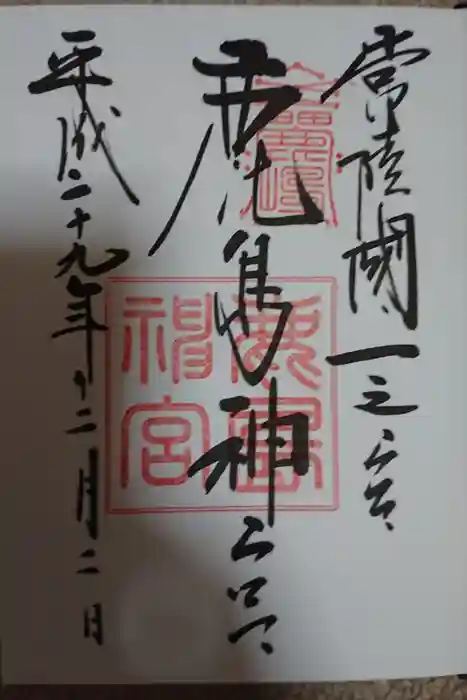 常陸國一之宮
鹿島神宮
平成二十九年十二月二日
鹿島
神宮